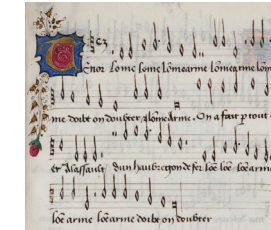 Tenor Lome lome lomearme lomearme lom
me doibt on doubter lomearme. On a fait p tout
er Alassault dun haubregon de fer loe loe loearm
loe arme loearme doibt on doubter